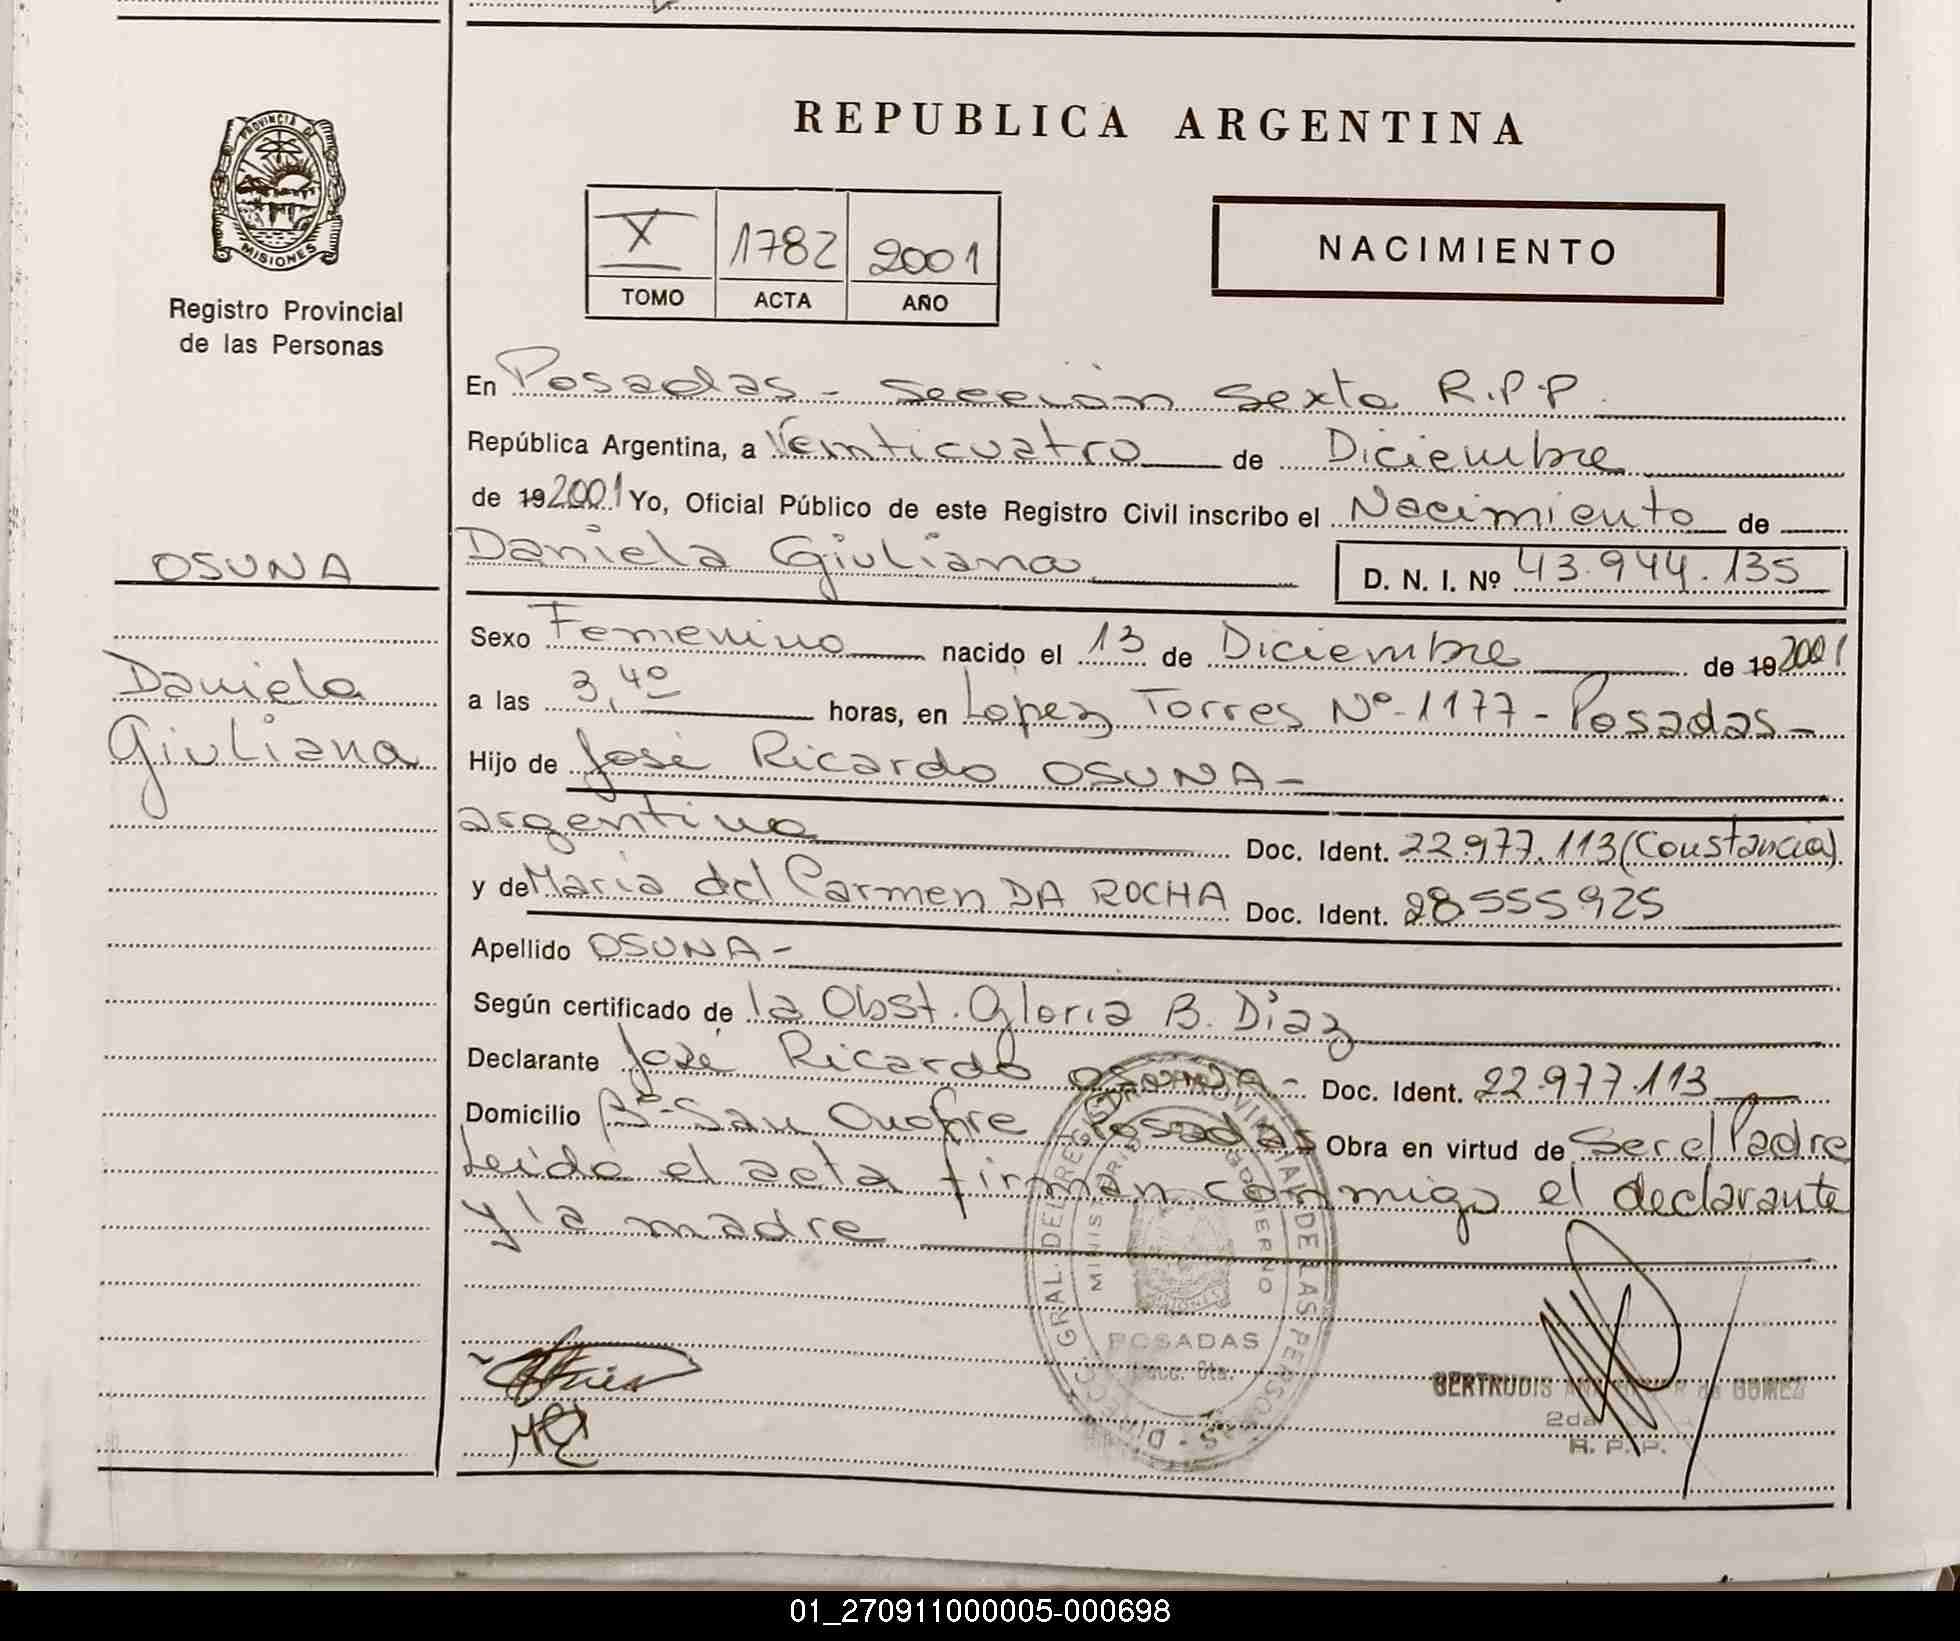 REPUBLICA ARGENTINA
PROVINCIA DE
MISIONES
Registro Provincial
de las Personas
X 1782 2001
TOMO ACTA AÑO
NACIMIENTO
En Posadas - Sección Sexta R.P.P.
República Argentina, a Veinticuatro de Diciembre
de 192001 Yo, Oficial Público de este Registro Civil inscribo el Nacimiento de
OSUNA
Daniela Giuliana D. N. I. Nº 43.944.135
Sexo Femenino nacido el 13 de Diciembre de 192001
Daniela
Giuliana
a las 3,40 horas, en López Torres Nº-1177-Posadas-
Hijo de José Ricardo OSUNA-
argentino Doc. Ident. 22.977.113 (Constancia)
y de María del Carmen DA ROCHA Doc. Ident. 28.555925
Apellido OSUNA-
Según certificado de la Obst. Gloria B. Díaz
Declarante José Ricardo OSUNA- Doc. Ident. 22.977.113
Domicilio Bº-San Onofre Posadas Obra en virtud de Ser el Padre
Leído el acta firman conmigo el declarante
y la madre
DIRECC. GRAL. DEL REG. PROVINCIAL DE LAS PERSONAS
MINISTERIO DE GOBIERNO
MISIONES
POSADAS
Secc. 6ta.
GERTRUDIS de GOMEZ
2da
R. P. P.
01_270911000005-000698